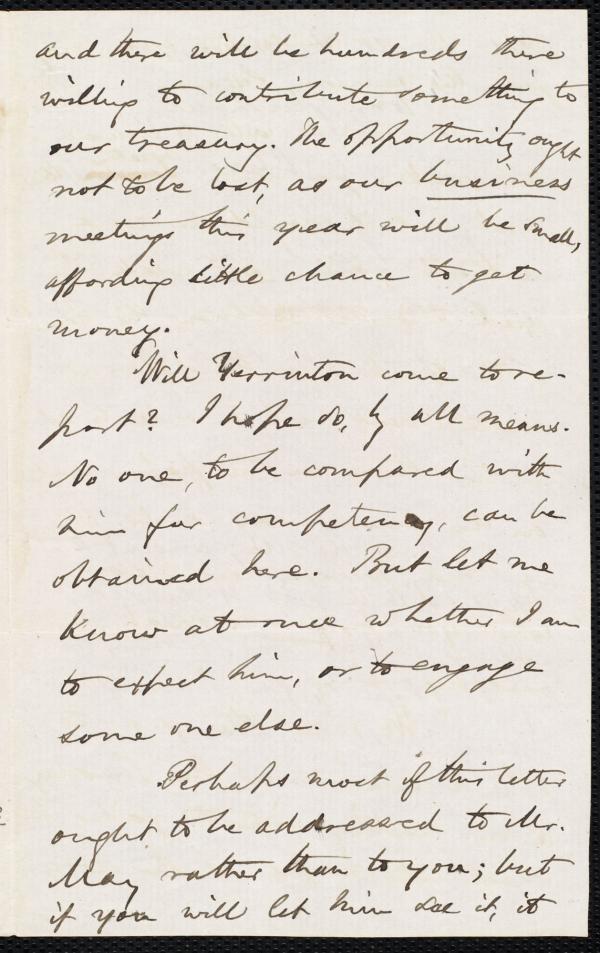 and there will be hundreds there
willing to contribute something to
our treasury. The opportunity ought
not to be lost, as our business
meetings this year will be small,
affording little chance to get
money.
Will Yerrinton come to re-
port? I hope so, by all means.
No one, to be compared with
him for competency, can be
obtained here. But let me
know at once whether I am
to expect him, or to engage
some one else.
Perhaps most of this letter
ought to be addressed to Mr.
May rather than to you; but
if you will let him see it, it